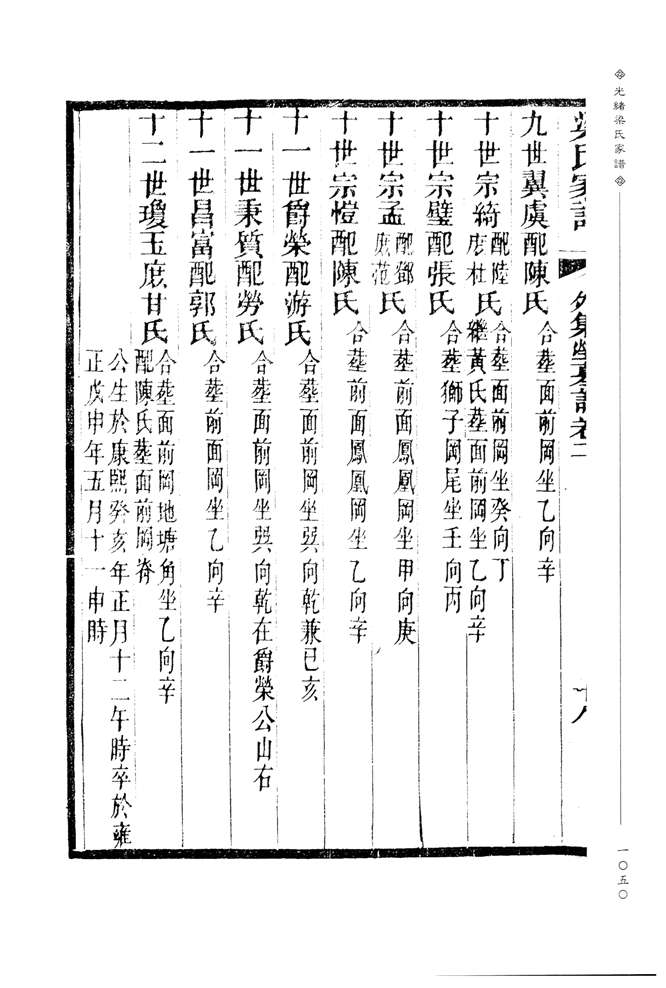 光緒梁氏家譜
一〇五〇
梁氏家譜 外集塋墓譜卷二 十八
九世翼虞配陳氏 合塟面前岡坐乙向辛
十世宗綺配陸庶杜氏 合塟面前岡坐癸向丁
繼黃氏塟面前岡坐乙向辛
十世宗璧配張氏 合塟獅子岡尾坐壬向丙
十世宗孟配鄧庶范氏 合塟前面鳳凰岡坐甲向庚
十世宗愷配陳氏 合塟前面鳳凰岡坐乙向辛
十一世爵榮配游氏 合塟面前岡坐巽向乾兼巳亥
十一世秉質配勞氏 合塟面前岡坐巽向乾在爵榮公山右
十一世昌富配郭氏 合塟前面岡坐乙向辛
十二世瓊玉庶甘氏 合塟面前岡地塘角坐乙向辛
配陳氏塟面前岡脊
公生於康熙癸亥年正月十二午時卒於雍
正戊申年五月十一申時